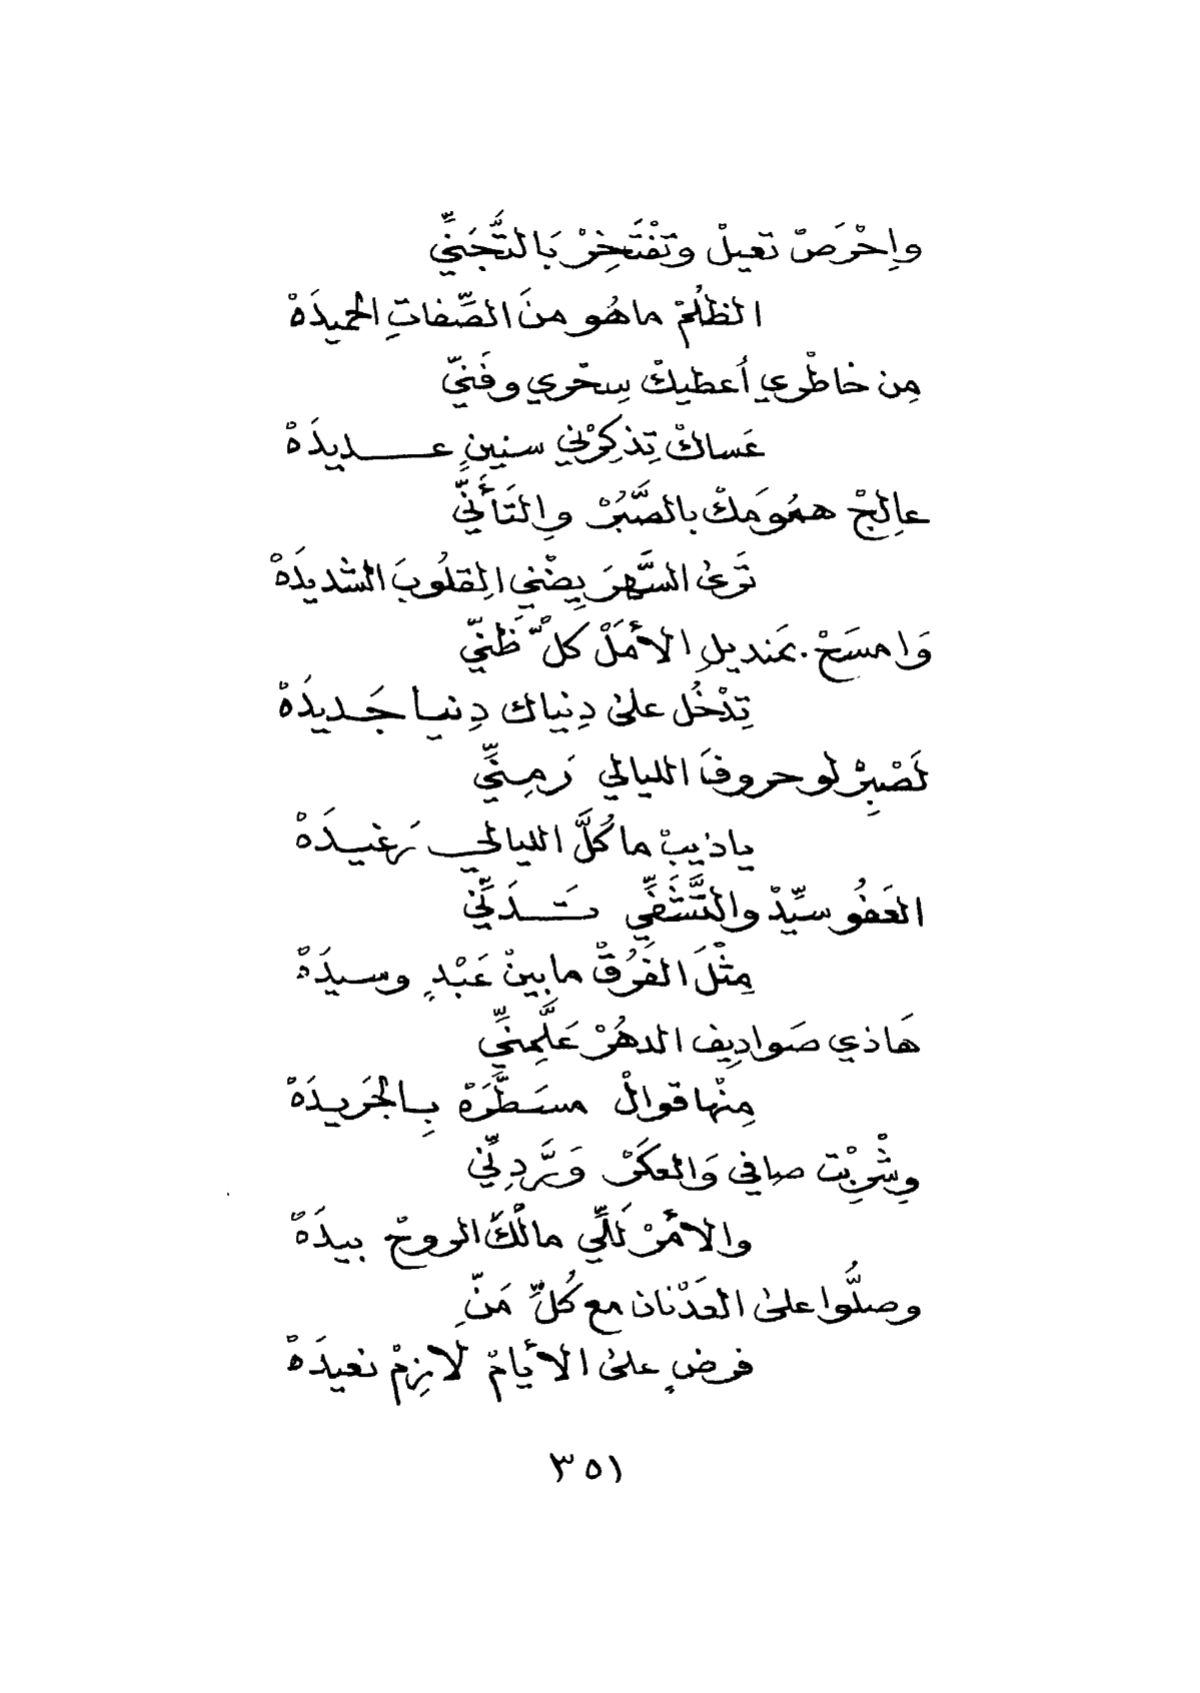 وإِحْرَصْ تعيلْ وتَفْتَخِرْ بَالتَّجَنِّي
الظلُمْ ماهُو منَ الصِّفاتِ الحميدَهْ
مِن خاطْري أعطيكْ سِحْري وفَنّي
عَساكْ تِذكِرْني سنينٍ عـــديدَهْ
عالِجْ همُومَكْ بالصَّبُرْ والِتَأَنِّي
تَرىٰ السَّهرَ يِضْني القلُوبَ الشديدَهْ
وَامسَحْ بمَنديلِ الأمَلْ كلْ ظَنّي
تِدْخُل علىٰ دِنياك دِنيـا جَـديدَهْ
لَصْبِرْ لو حروفَ الليالي رَمِـنِّي
ياذيبْ ماكُلَّ الليالـي رَغيـدَهْ
العَفُو سيِّدْ والتَّشَفِّي تَـدَنِّي
مِثْلَ الفَرُقْ مابينْ عَبْدٍ وسـيدَهْ
هَاذي صَواديِف الدهُرْ عَلَّمِنِّي
مِنْها قوالْ مسَطَّرَهْ بِـالجَريـدَهْ
وِشْرِبْت صافي وَالعكَرْ وَرَّدِنِّي
والأمْرْ لَلِّي مالْكَ الروحْ بيدَهْ
وصلُّوا علىٰ العَدْنان مع كُلِّ مَنِّ
فرضٍ علىٰ الأيامْ لَازِمْ نعيدَهْ
٣٥١